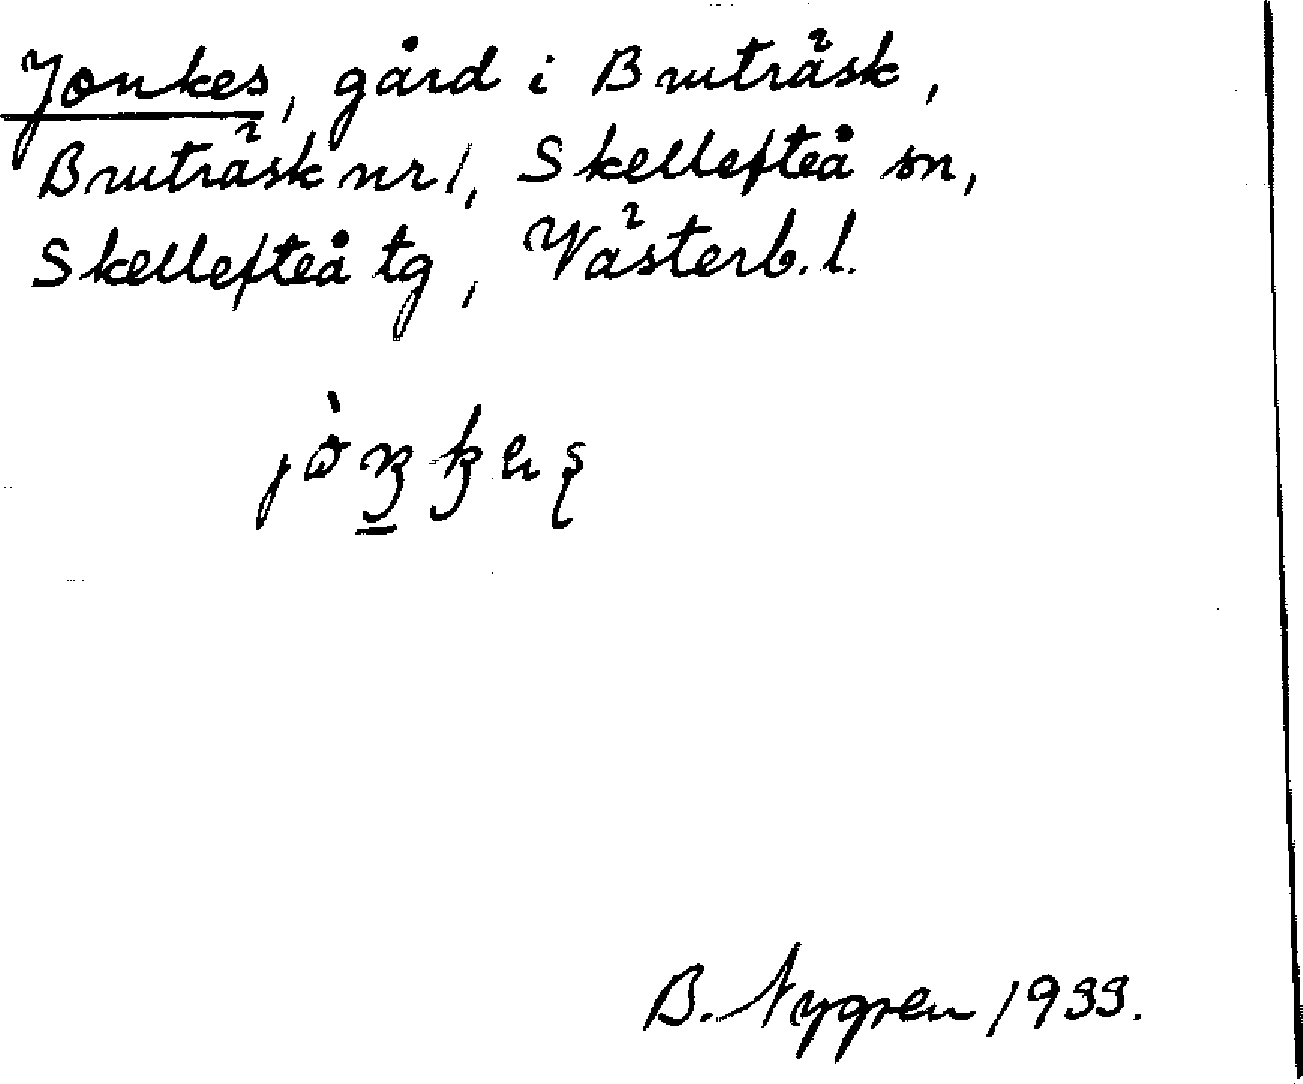 Jonkes, gård i Bruträsk,
Bruträsk nr 1, Skellefteå sn,
Skellefteå tg, Västerb. l.
B. Nygren 1933.